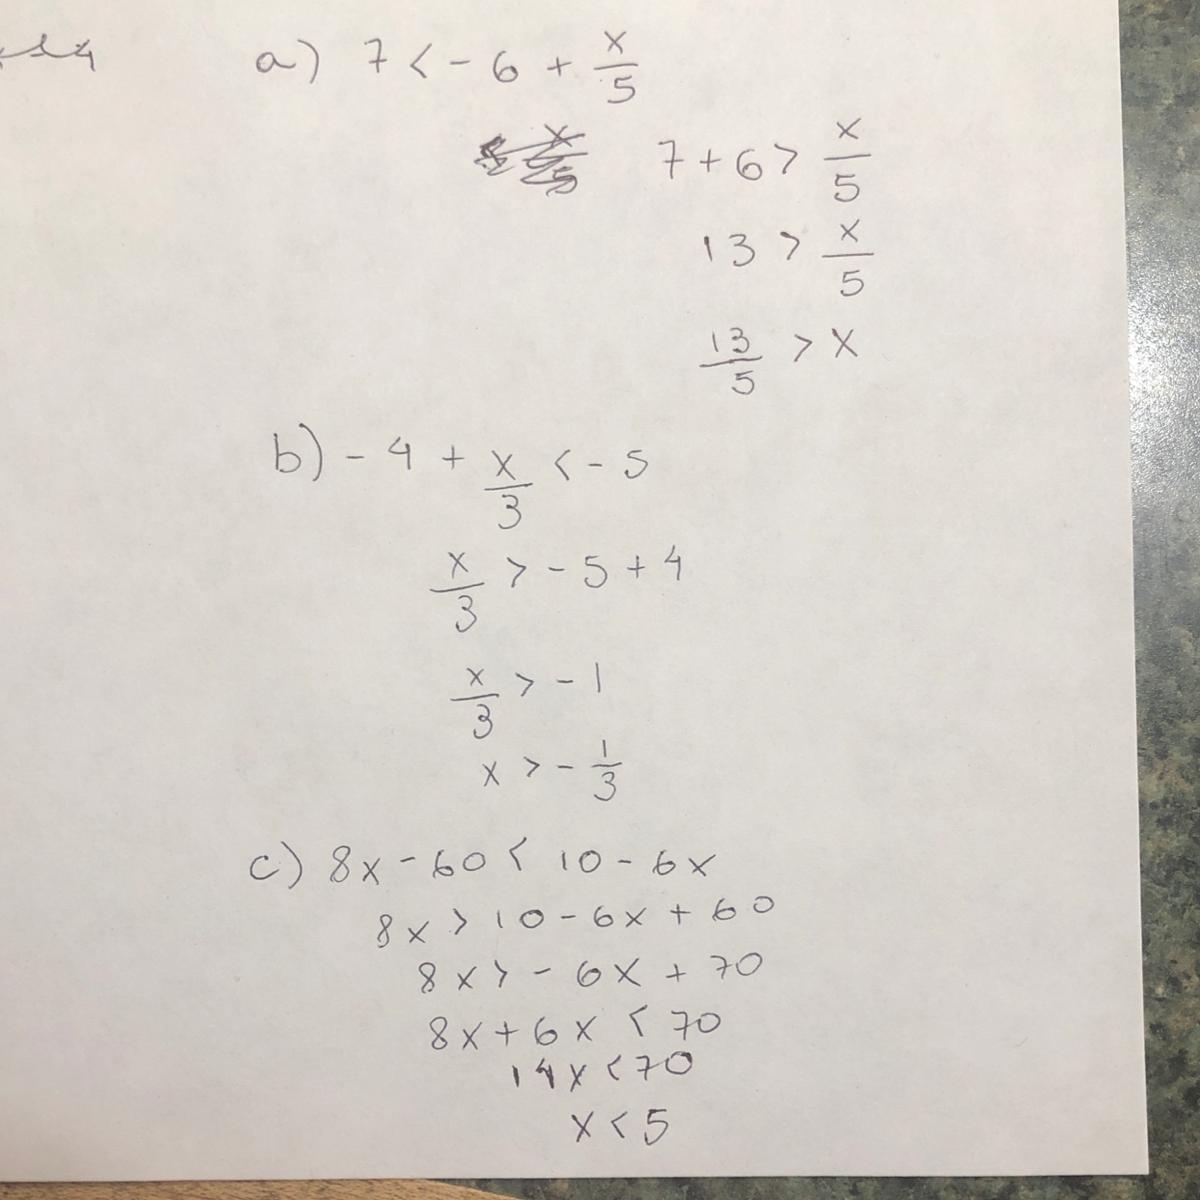 a) 7 < - 6 + x/5
7 + 6 > x/5
13 > x/5
13/5 > x
b) - 4 + x/3 < - 5
x/3 > - 5 + 4
x/3 > - 1
x > - 1/3
c) 8x - 60 < 10 - 6x
8x > 10 - 6x + 60
8x > - 6x + 70
8x + 6x < 70
14x < 70
x < 5